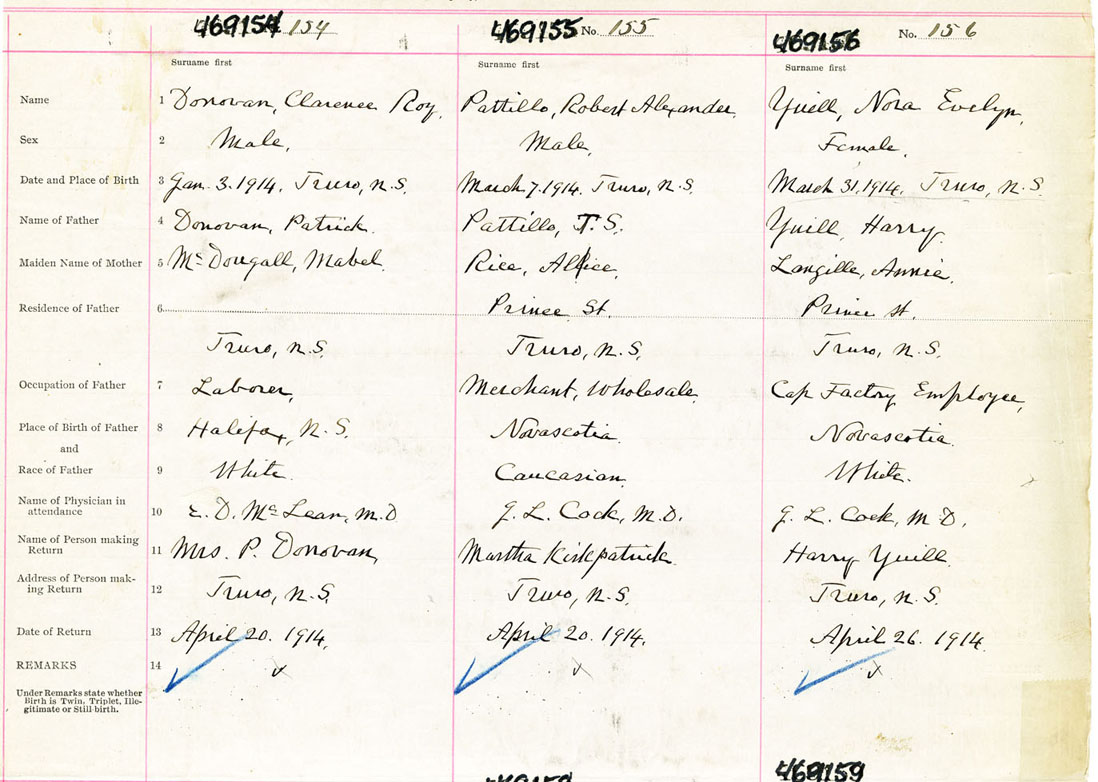 469154 154 469155 No. 155 469156 No. 156
Surname first Surname first Surname first
Name 1 Donovan, Clarence Roy. Pattillo, Robert Alexander. Yuill, Nora Evelyn.
Sex 2 Male, Male, Female.
Date and Place of Birth 3 Jan. 3. 1914. Truro, N.S. March 7. 1914. Truro, N.S. March 31, 1914. Truro, N.S.
Name of Father 4 Donovan, Patrick. Pattillo, T. S. Yuill, Harry.
Maiden Name of Mother 5 McDougall, Mabel. Rice, Allice. Langille, Annie.
Residence of Father 6 Prince St. Prince St.
Truro, N.S. Truro, N.S. Truro, N.S.
Occupation of Father 7 Laborer, Merchant, Wholesale. Cap Factory Employee,
Place of Birth of Father 8 Halifax, N.S. Novascotia. Novascotia.
and
Race of Father 9 White. Caucasian. White.
Name of Physician in
attendance 10 E. D. McLean, M.D. G. L. Cock, M.D. G. L. Cock, M.D.
Name of Person making
Return 11 Mrs. P. Donovan, Martha Kirkpatrick. Harry Yuill.
Address of Person mak-
ing Return 12 Truro, N.S. Truro, N.S. Truro, N.S.
Date of Return 13 April 20. 1914. April 20. 1914. April 26. 1914.
REMARKS 14 x x x
Under Remarks state whether
Birth is Twin, Triplet, Ille-
gitimate or Still-birth.
469159